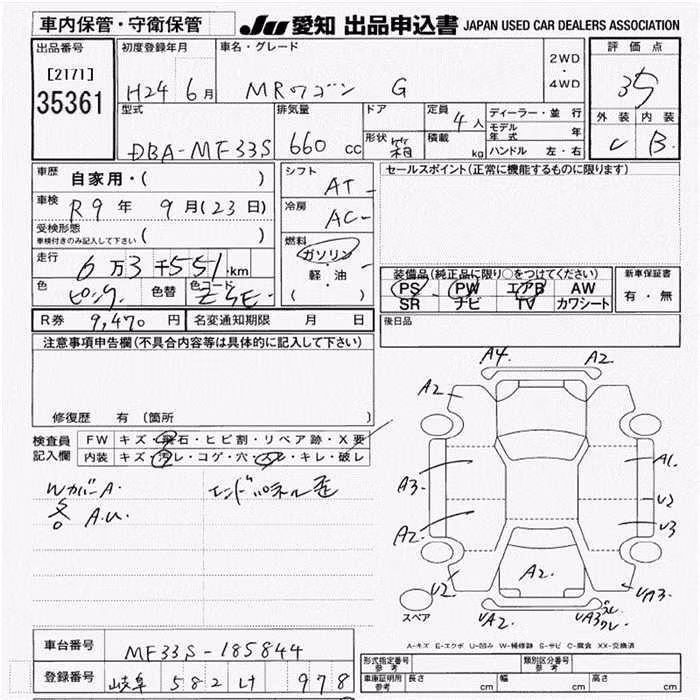 車内保管・守衛保管 JU 愛知 出品申込書 JAPAN USED CAR DEALERS ASSOCIATION
出品番号 初度登録年月 車名・グレード 2WD・4WD 評価点
[2171] H24 6月 MRワゴン G 35
35361 型式 排気量 ドア 定員 4人 ディーラー・並行 外装 内装
DBA-MF33S 660cc 形状 箱 積載 kg モデル年式 年 C B
ハンドル 左・右
車歴 自家用・( ) シフト AT セールスポイント(正常に機能するものに限ります)
車検 R9年 9月(23日) 冷房 AC
受検形態 車検付きのみ記入して下さい ( ) 燃料 ガソリン
走行 6万3千551km 軽・油 装備品(純正品に限り○をつけてください) 新車保証書
色 ピンク 色替 色コード ZSE ( ) PS PW エアB AW 有・無
SR ナビ TV カワシート
R券 9,470円 名変通知期限 月 日 後日品
注意事項申告欄(不具合内容等は具体的に記入して下さい)
修復歴 有 (箇所 )
A4 A2
A2
検査員 FW キズ・飛石・ヒビ割・リペア跡・X要
記入欄 内装 キズ・汚レ・コゲ・穴・スレ・キレ・破レ
WカバーA エンドパネル歪
各A.U.
A3 A1
U2
A2 U3
U2 A2 UA3
UA2 UA3
スペア
A-キズ E-エクボ U-凹み W-補修跡 S-サビ C-腐食 XX-交換済
車台番号 MF33S-185844
登録番号 岐阜 582 け 978
形式指定番号 参考 類別区分番号 参考
車庫証明用 参考 長さ cm 幅 cm 高さ cm